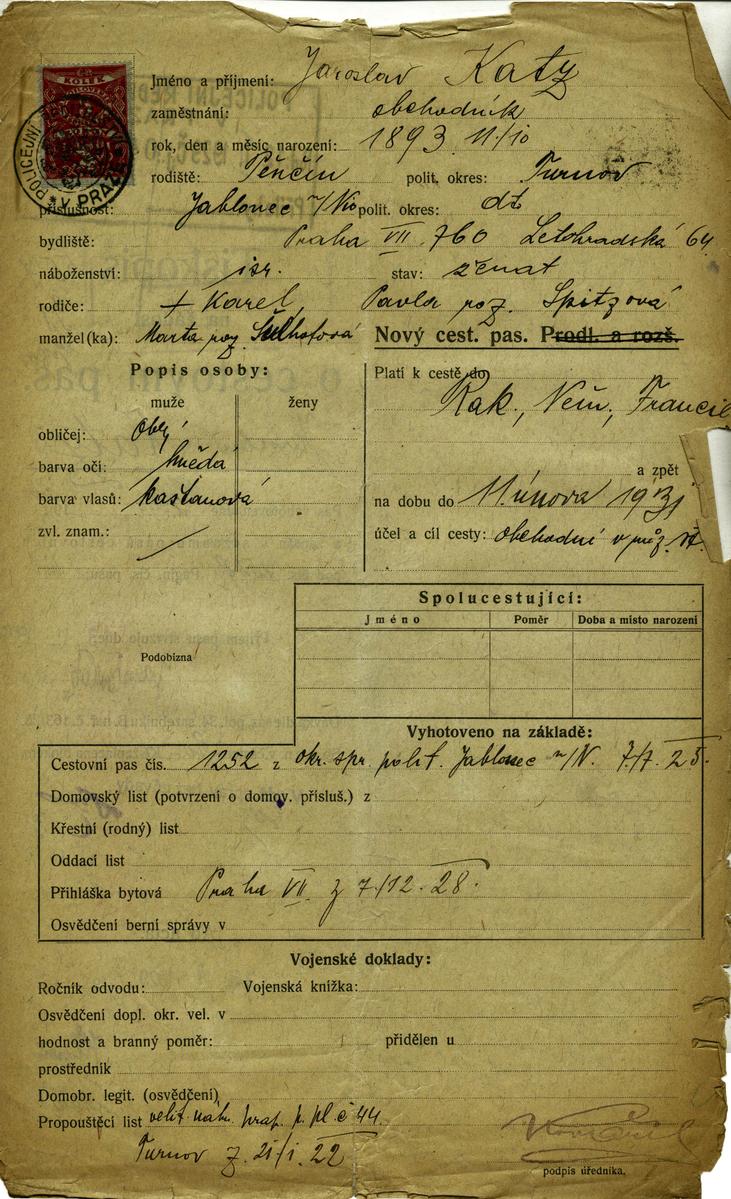 KOLEK
POLICEJNÍ ŘED
V PRAZE
Jméno a příjmení: Jaroslav Katz
zaměstnání: obchodník
rok, den a měsíc narození: 1893 11./10
rodiště: Pěnčín polit. okres: Turnov
příslušnost: Jablonec n/N polit. okres: dt
bydliště: Praha VII. 760 Letohradská 64
náboženství: isr. stav: ženat
rodiče: + Karel, Pavla roz. Spitzová
manžel(ka): Marta roz.
Nový cest. pas. Prodl. a rozš.
Popis osoby:
muže ženy
obličej: oblý
barva očí: hnědá
barva vlasů: kaštanová
zvl. znam.:
Platí k cestě do
Rak., Něm., Francie
a zpět
na dobu do 11. února 1931
účel a cíl cesty: obchodní v růz. st.
Spolucestující:
Jméno Poměr Doba a místo narození
Podobizna
Vyhotoveno na základě:
Cestovní pas čís. 1252 z okr. spr. polit. Jablonec n/N. 7./7. 25.
Domovský list (potvrzení o domov. přísluš.) z
Křestní (rodný) list
Oddací list
Přihláška bytová Praha VII. z 7./12. 28.
Osvědčení berní správy v
Vojenské doklady:
Ročník odvodu: Vojenská knížka:
Osvědčení dopl. okr. vel. v
hodnost a branný poměr: přidělen u
prostředník
Domobr. legit. (osvědčení)
Propouštěcí list velit. náhr. prap. p. pl. č 44.
Turnov z 21/I. 22
podpis úředníka.